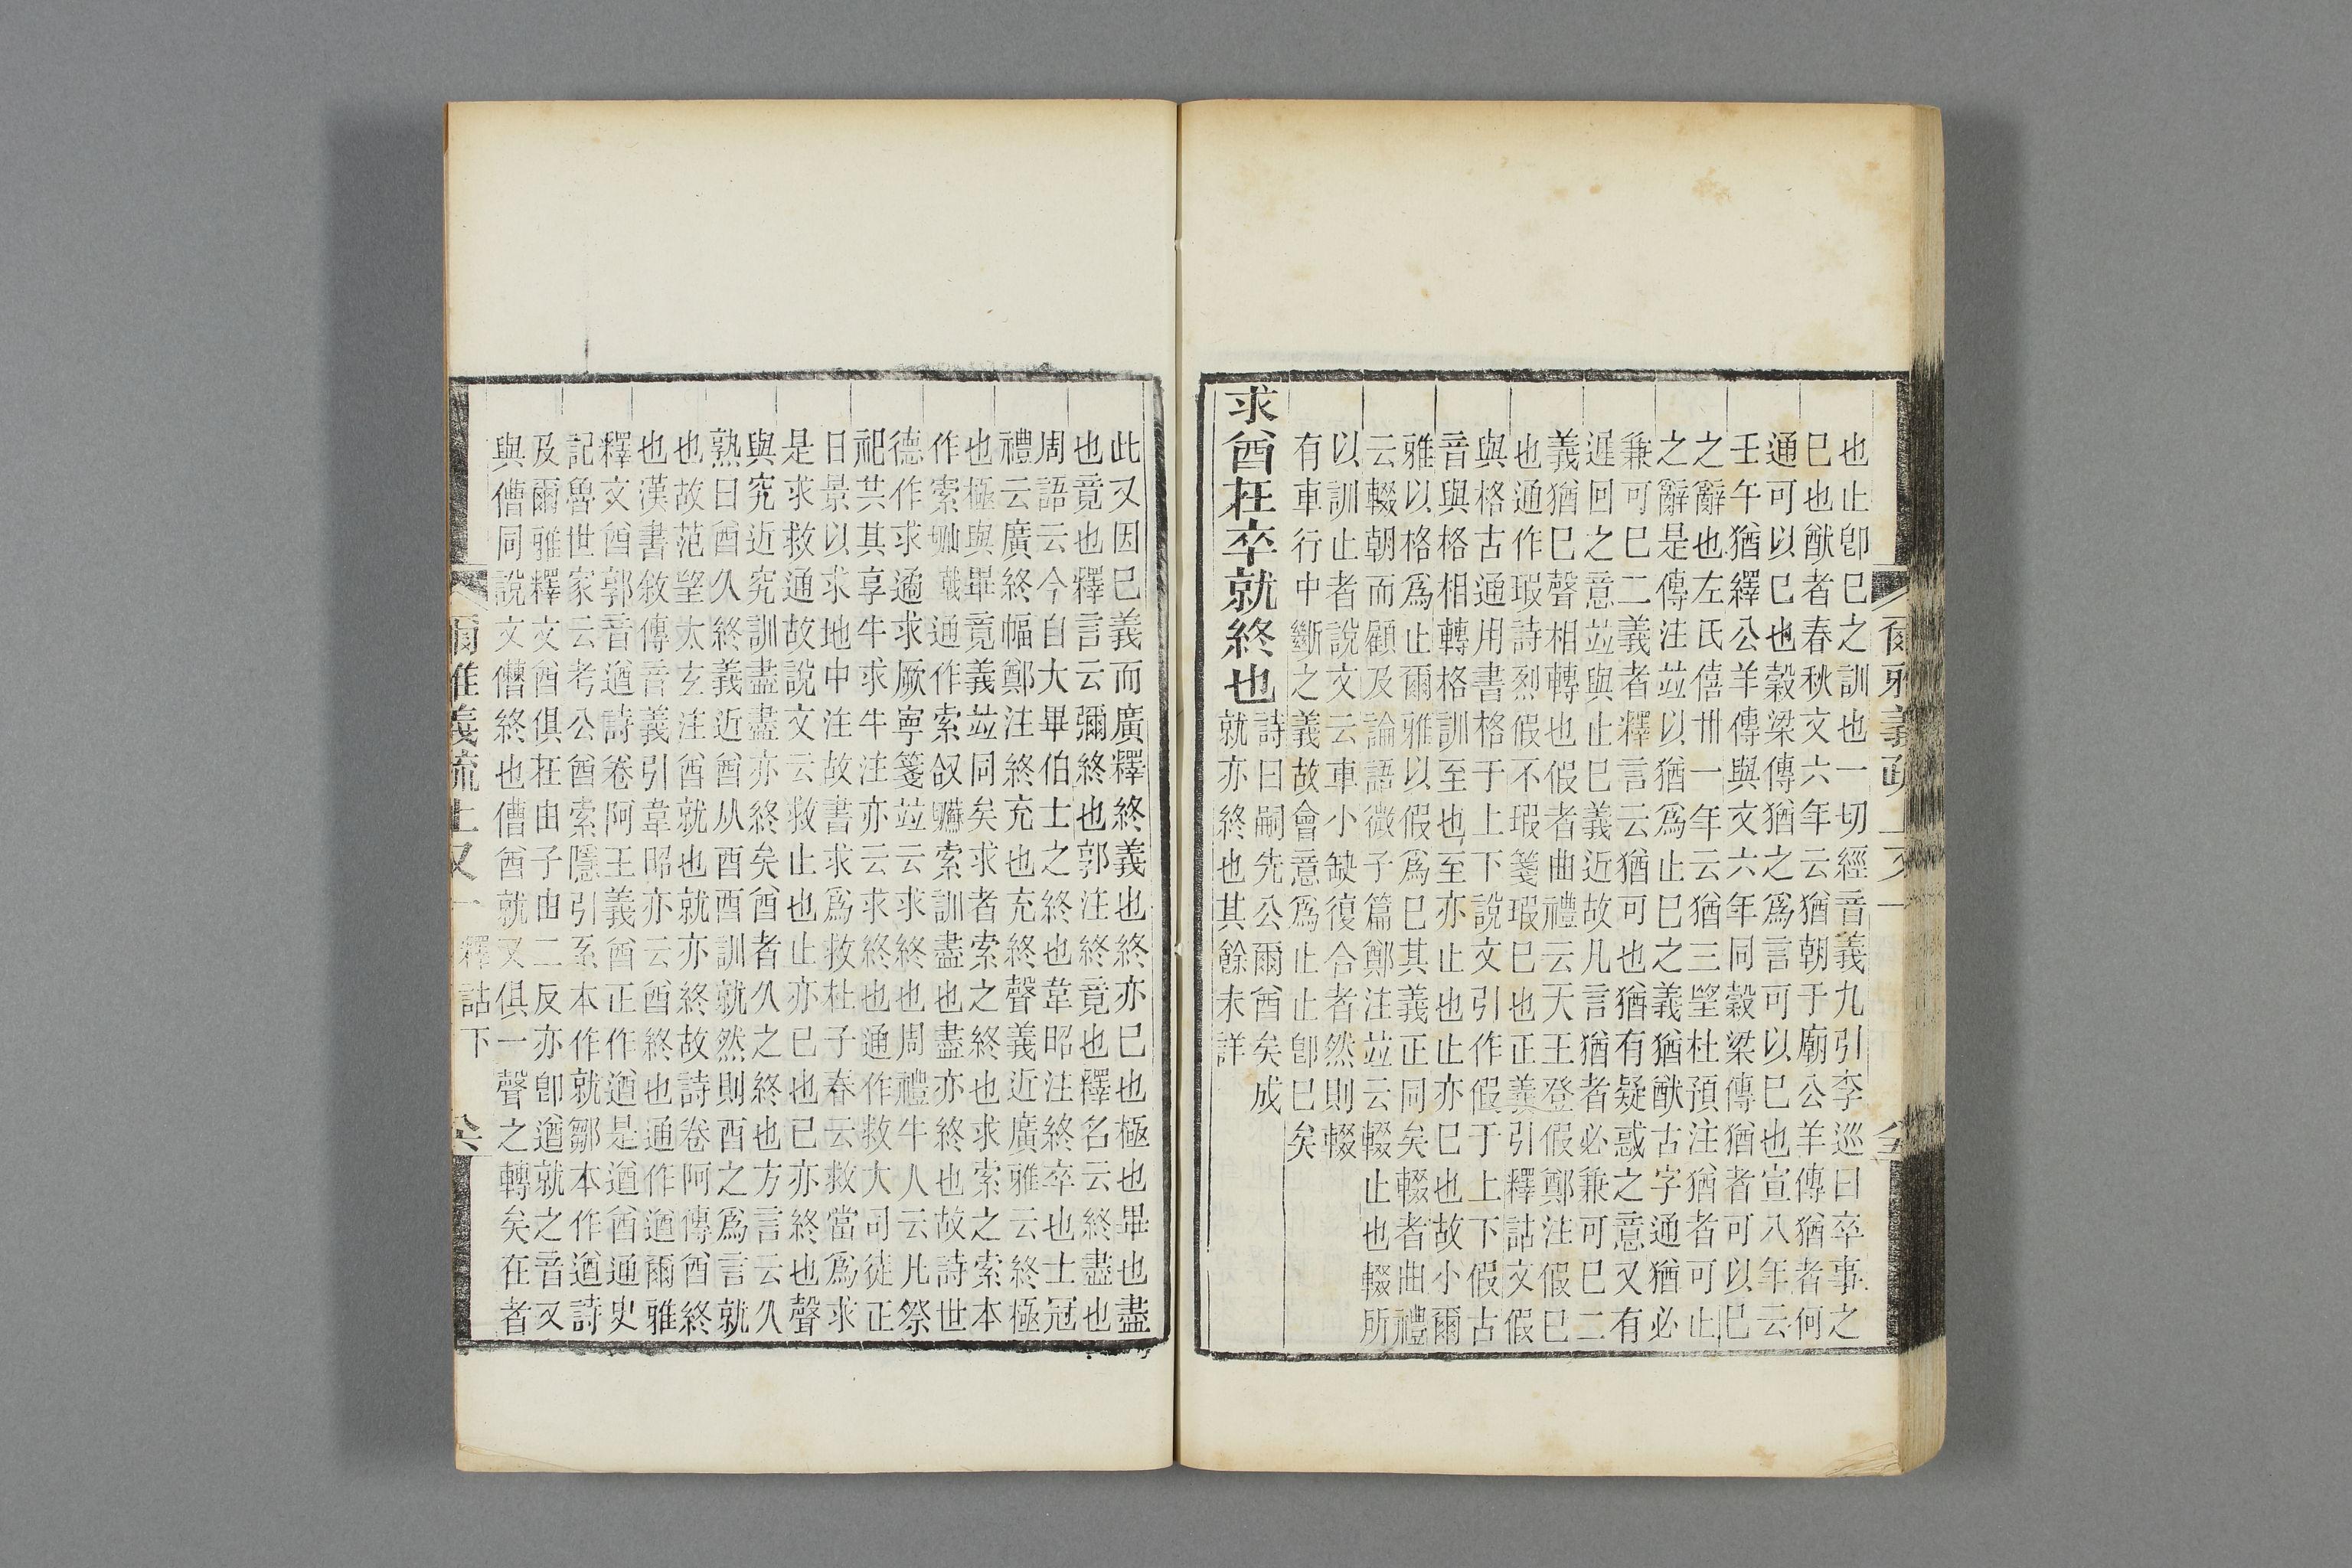 爾雅義疏 上又一
也止卽巳之訓也一切經音義九引李巡曰卒事之
巳也猷者春秋文六年云猶朝于廟公羊傳猶者何
通可以巳也穀梁傳猶之爲言可以巳也宣八年云
壬午猶繹公羊傳與文六年同穀梁傳猶者可以巳
之辭也左氏僖卅一年云猶三望杜預注猶者可止
之辭是傳注竝以猶爲止巳之義猶猷古字通猶必
兼可巳二義者釋言云猶可也猶有疑惑之意又有
遲回之意竝與止巳義近故凡言猶者必兼可巳二
義猶巳聲相轉也假者曲禮云天王登假鄭注假巳
也通作瑕詩烈假不瑕箋瑕巳也正義引釋詁文假
與格古通用書格于上下說文引作假于上下假古
音與格相轉格訓至也至亦止也止亦巳也故小爾
雅以格爲止爾雅以假爲巳其義正同矣輟者曲禮
云輟朝而顧及論語微子篇鄭注竝云輟止也輟所
以訓止者說文云車小缺復合者然則輟
有車行中斷之義故會意爲止止卽巳矣
求酋在卒就終也
詩曰嗣先公爾酋矣成
就亦終也其餘未詳
此又因巳義而廣釋終義也終亦巳也極也畢也盡
也竟也釋言云彌終也郭注終竟也釋名云終盡也
周語云今自大畢伯士之終也韋昭注終卒也士冠
禮云廣終幅鄭注終充也充終聲義近廣雅云終極
也極與畢竟義竝同矣求者索之終也求索之索本
作索通作索訓盡也盡亦終也故詩世
德作求遹求厥寧箋竝云求終也周禮牛人云凡祭
祀共其享牛求牛注亦云求終也通作救大司徒正
日景以求地中注故書求爲救杜子春云救當爲求
是求救通故說文云救止也止亦巳也巳亦終也聲
與究近究訓盡盡亦終矣酋者久之終也方言云久
熟曰酋久終義近酋从酉酉訓就然則酉之爲言就
也故范望太玄注酋就也就亦終故詩卷阿傳酋終
也漢書敘傳音義引韋昭亦云酋終也通作遒爾雅
釋文酋郭音遒詩卷阿王義酋正作遒是遒酋通史
記魯世家云考公酋索隱引系本作就鄒本作遒詩
及爾雅釋文酋俱在由子由二反亦卽遒就之音又
與傮同說文傮終也傮酋就又俱一聲之轉矣在者
爾雅義疏上又一 釋詁下